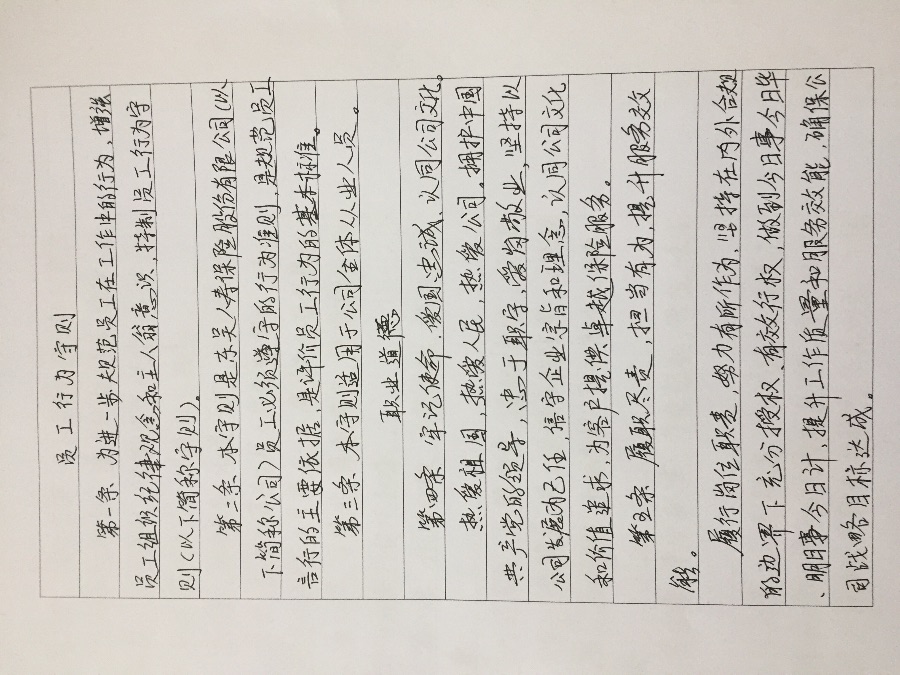 员工行为守则
第一条 为进一步规范员工在工作中的行为，增强
员工组织纪律观念和主人翁意识，特制员工行为守
则（以下简称守则）。
第二条 本守则是东吴人寿保险股份有限公司（以
下简称公司）员工必须遵守的行为准则，是规范员工
言行的主要依据，是评价员工行为的基本标准。
第三条 本守则适用于公司全体从业人员。
职业道德
第四条 牢记使命、爱国忠诚、认同公司文化。
热爱祖国，热爱人民，热爱公司。拥护中国
共产党的领导，忠于职守，爱岗敬业，坚持以
公司发展为己任，信守企业宗旨和理念，认同公司文化
和价值追求，为客户提供卓越保险服务。
第五条 履职尽责，担当有为，提升服务效
能。
履行岗位职责，努力有所作为，坚持在内外合规
的边界下充分授权、有效行权，做到今日事今日毕
、明日事今日计，提升工作质量和服务效能，确保公
司战略目标达成。